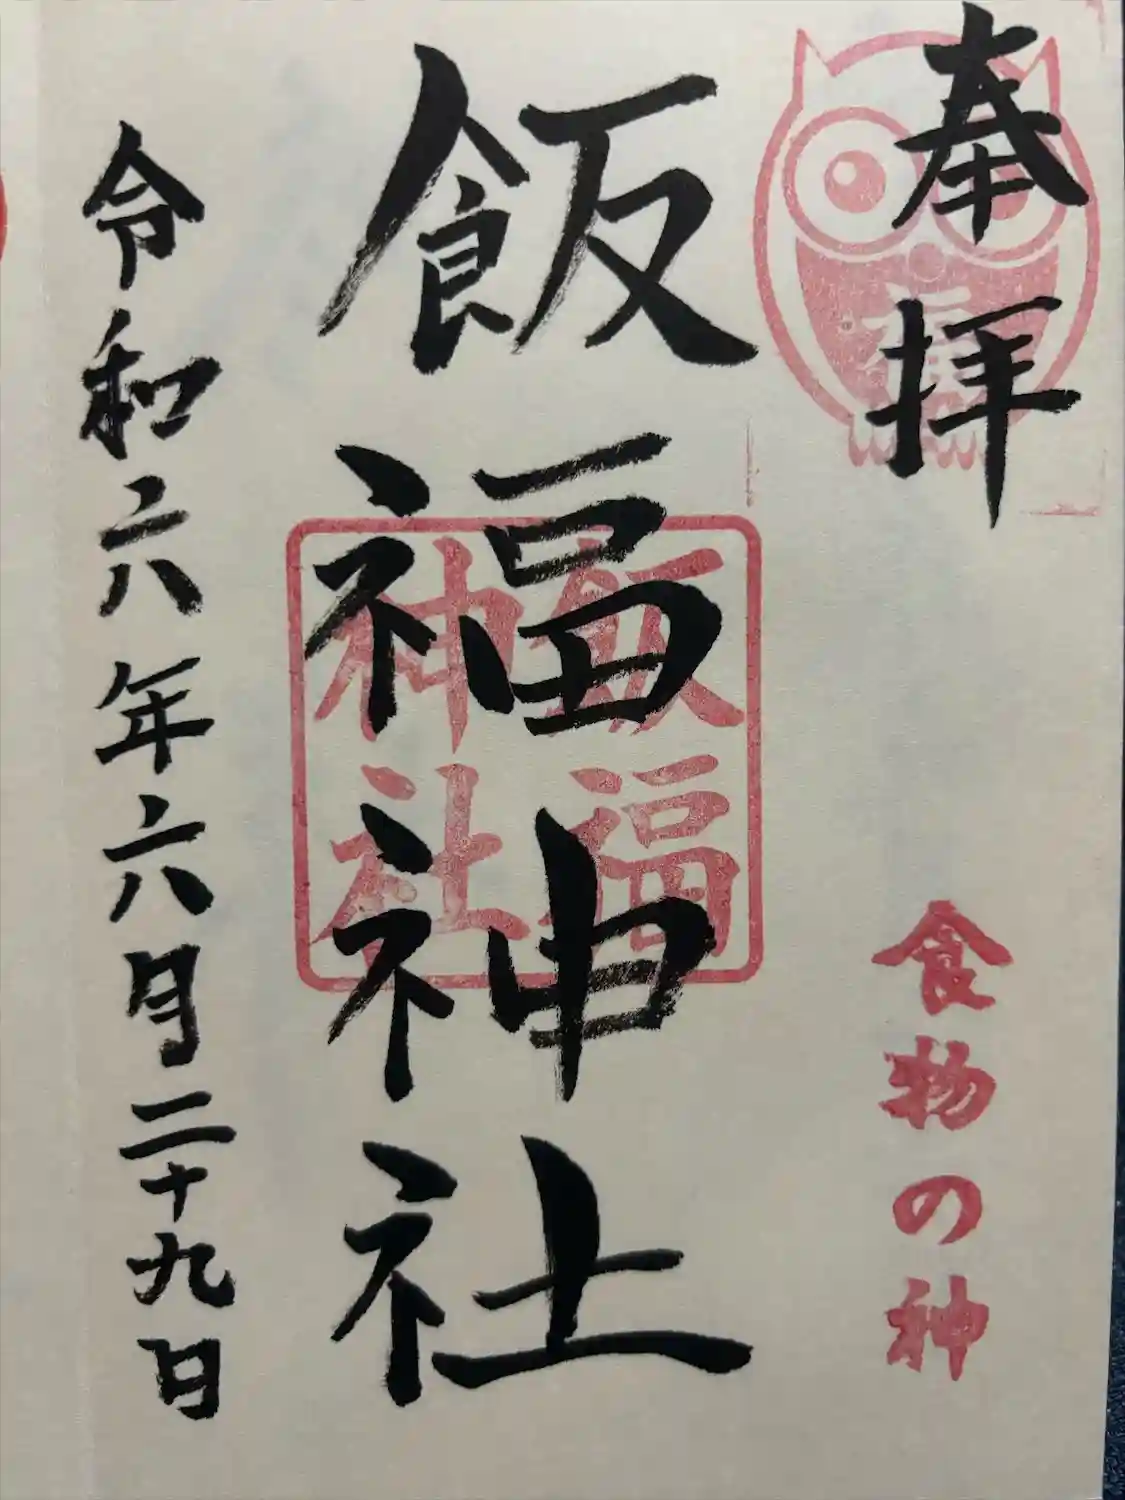 奉拝
福
食物の神
飯福神社
飯福
神社
令和六年六月二十九日